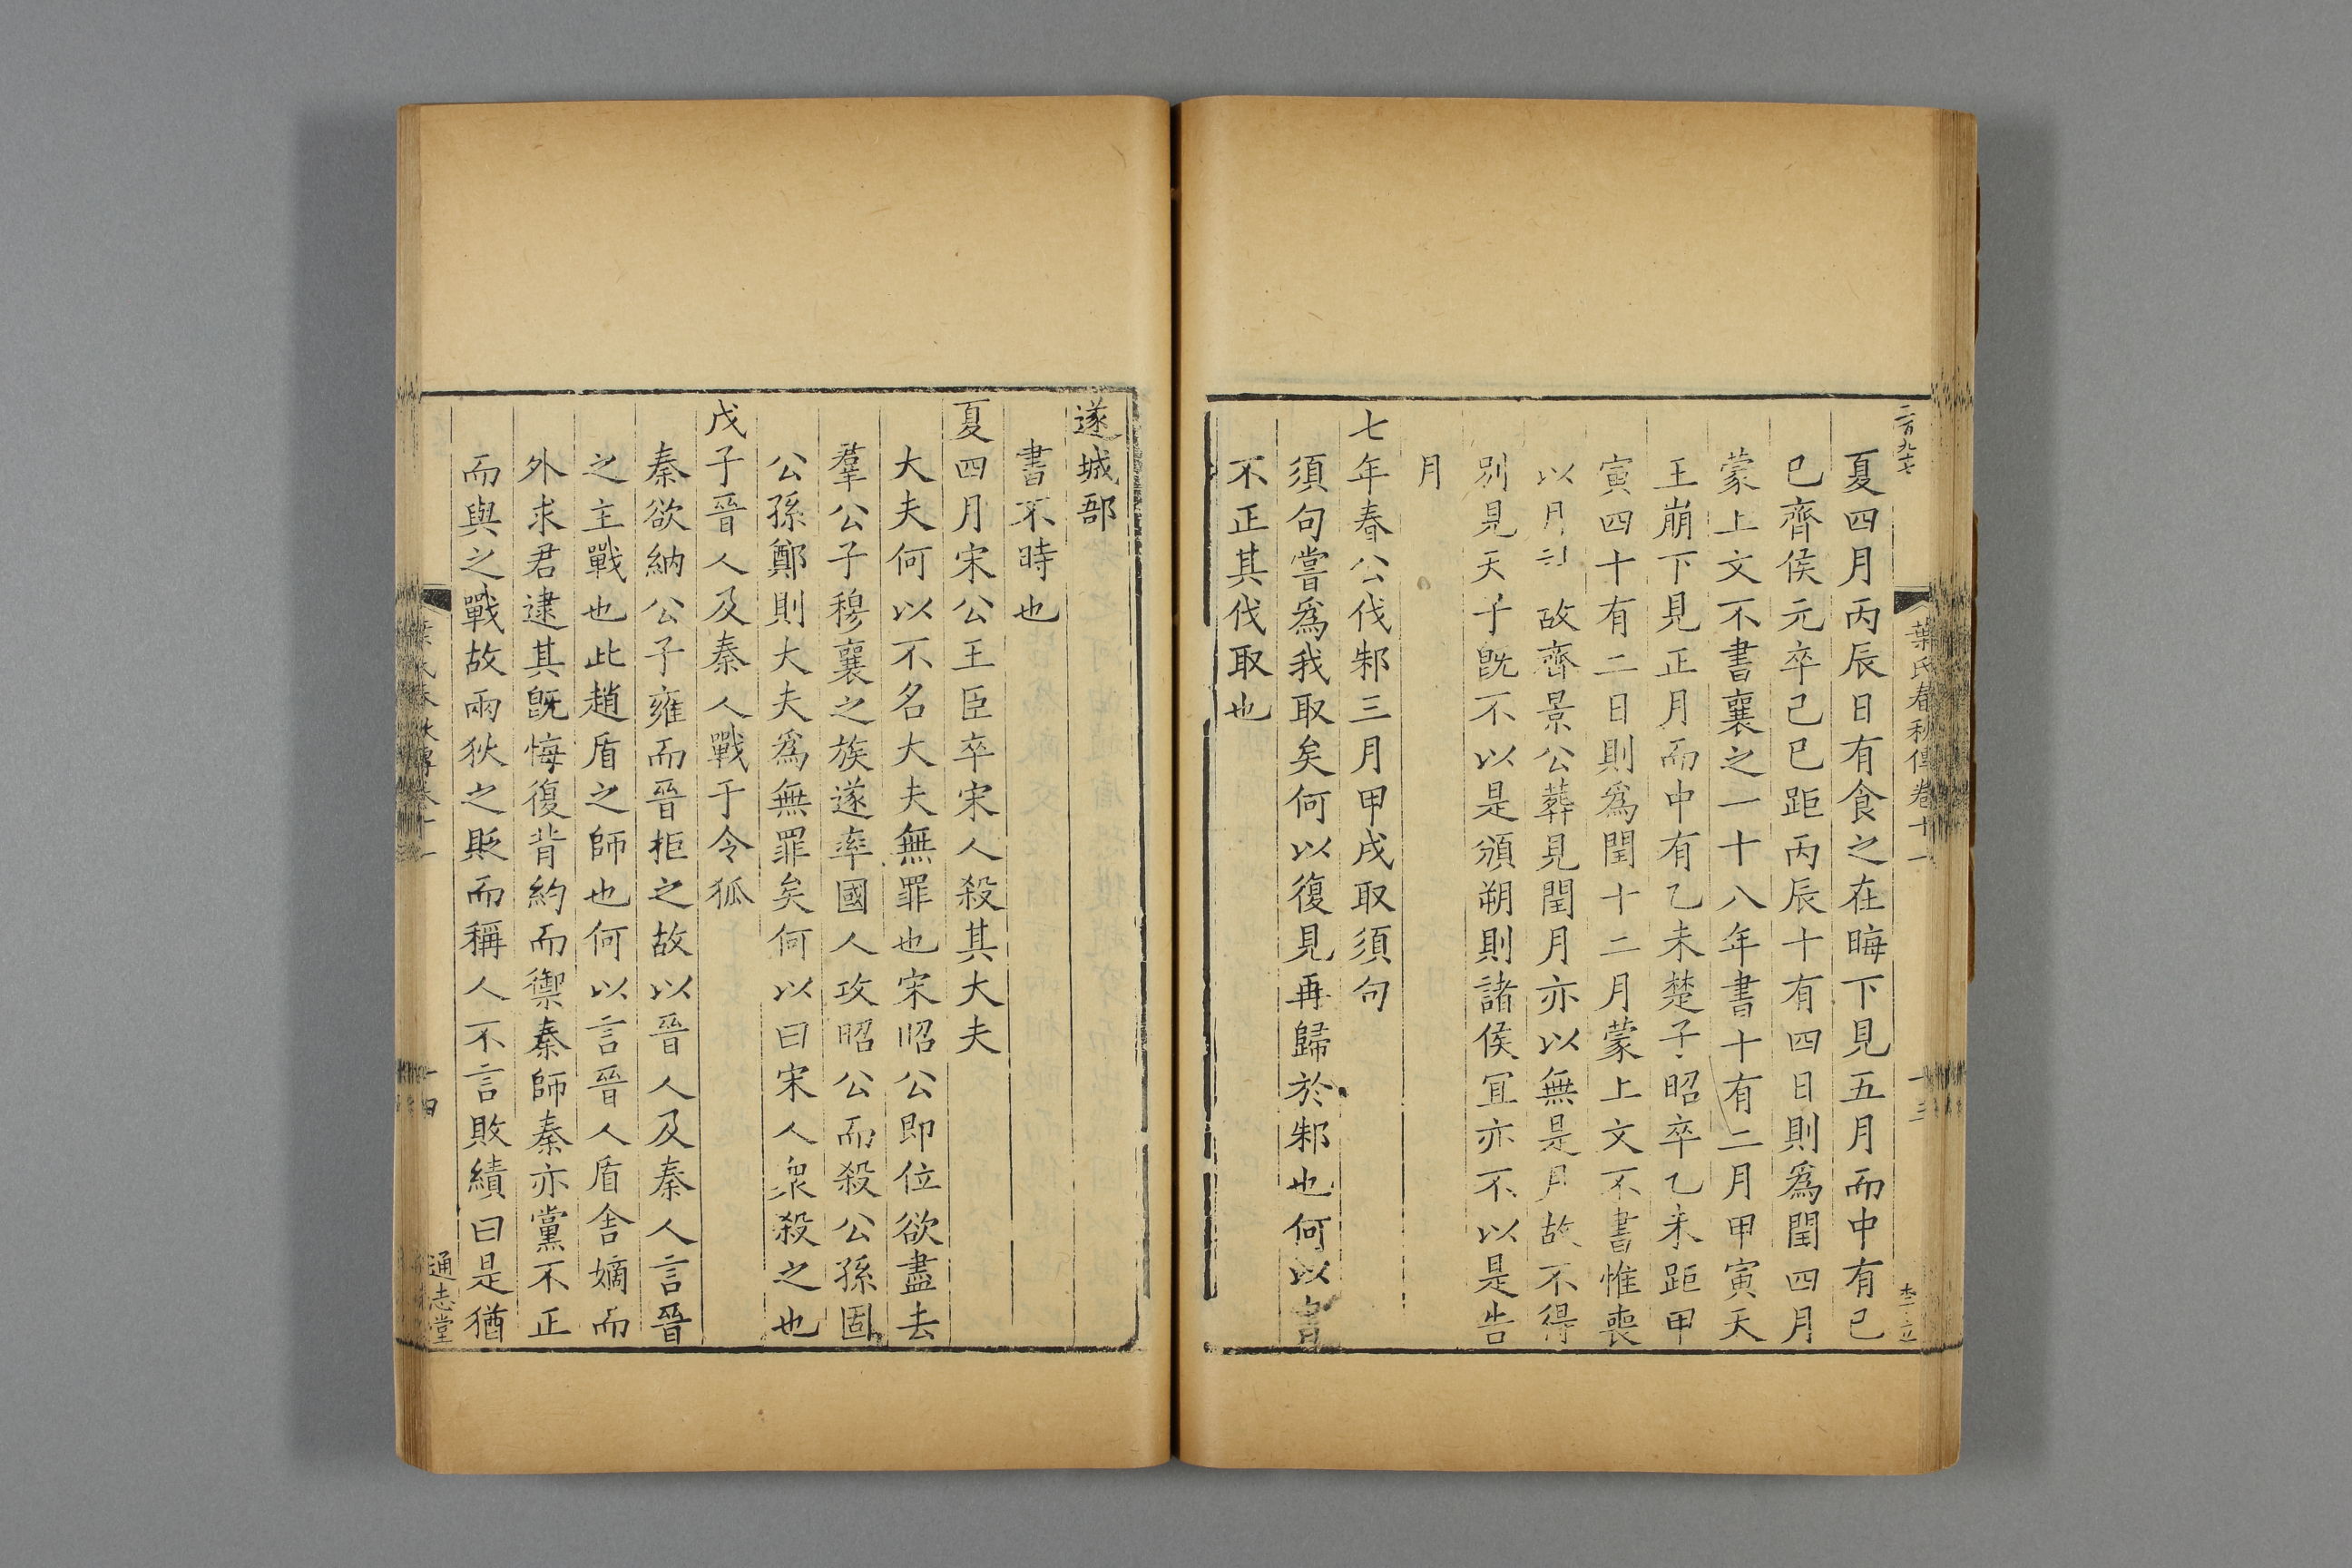 葉氏春秋傳卷十一
十三
夏四月丙辰日有食之在晦下見五月而中有己
巳齊侯元卒己巳距丙辰十有四日則爲閏四月
蒙上文不書襄之一十八年書十有二月甲寅天
王崩下見正月而中有乙未楚子昭卒乙未距甲
寅四十有二日則爲閏十二月蒙上文不書惟喪
以月
故齊景公葬見閏月亦以無是月故不得
別見天子旣不以是頒朔則諸侯冝亦不以是告
月
七年春公伐邾三月甲戌取須句
須句嘗爲我取矣何以復見再歸於邾也何以書
不正其伐取也
遂城郚
書不時也
夏四月宋公王臣卒宋人殺其大夫
大夫何以不名大夫無罪也宋昭公即位欲盡去
羣公子穆襄之族遂率國人攻昭公而殺公孫固
公孫鄭則大夫爲無罪矣何以曰宋人衆殺之也
戊子晉人及秦人戰于令狐
秦欲納公子雍而晉拒之故以晉人及秦人言晉
之主戰也此趙盾之師也何以言晉人盾舍嫡而
外求君逮其旣悔復背約而禦秦師秦亦黨不正
而與之戰故兩狄之貶而稱人不言敗績曰是猶
通志堂